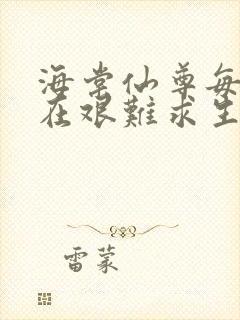 海棠仙尊每
在艰難求生
雷蒙